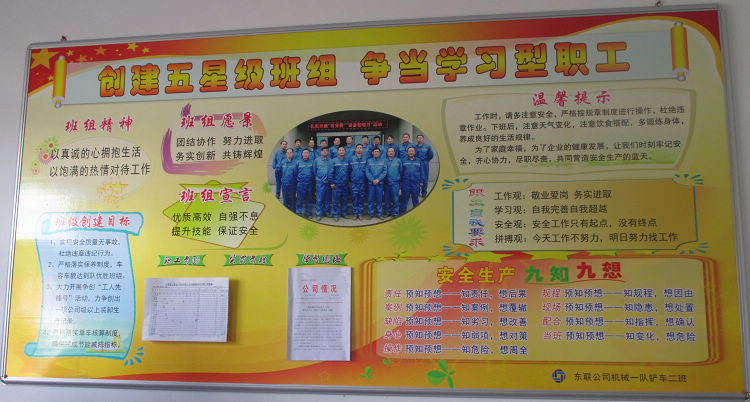 创建五星级班组 争当学习型职工
班组精神
以真诚的心拥抱生活
以饱满的热情对待工作
班组愿景
团结协作 努力进取
务实创新 共铸辉煌
班组宣言
优质高效 自强不息
提升技能 保证安全
温馨提示
工作时，请多注意安全，严格按规章制度进行操作，杜绝违
章作业。下班后，注意天气变化，注意饮食搭配，多锻炼身体，
养成良好的生活规律。
为了家庭幸福，为了企业的健康发展，让我们时刻牢记安
全，齐心协力，尽职尽责，共同营造安全生产的蓝天。
职工自我要求
工作观：敬业爱岗 务实进取
学习观：自我完善自我超越
安全观：安全工作只有起点，没有终点
拼搏观：今天工作不努力，明日努力找工作
班级创建目标
1、实现安全质量无事故，
杜绝违章违纪行为。
2、严格落实保养制度，车
容车貌达到队优胜班组。
3、大力开展争创“工人先
锋号”活动，力争创出
公司级以上装卸生
严格落实单车核算制度，
成节能减排指标。
公司情况
安全生产 九知九想
责任 预知预想——知责任，想后果
案例 预知预想——知案例，想覆辙
缺陷 预知预想——知劣习，想改善
身心 预知预想——知弱项，想对策
操作 预知预想——知危险，想周全
规程 预知预想——知规程，想因由
现场 预知预想——知隐患，想处置
配合 预知预想——知指挥，想确认
当班 预知预想——知变化，想危险
东联公司机械一队铲车二班